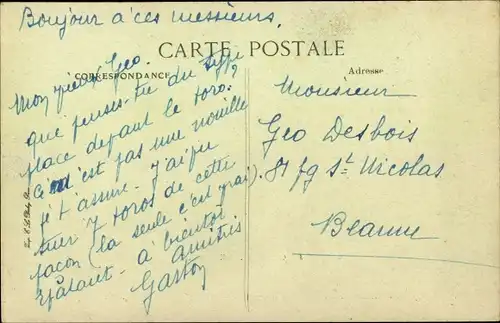 Bonjour à ces messieurs.
CARTE POSTALE
CORRESPONDANCE
Adresse
Mon vieux Geo.
que penses-tu du type
place devant le toro.
Ce n'est pas une nouille
je t'assure - j'ai pu
tuer 7 toros de cette
façon (la seule c'est vrai).
à bientôt
Amitiés
Gaston
Monsieur
Geo Desbois
fg St Nicolas
Beaune